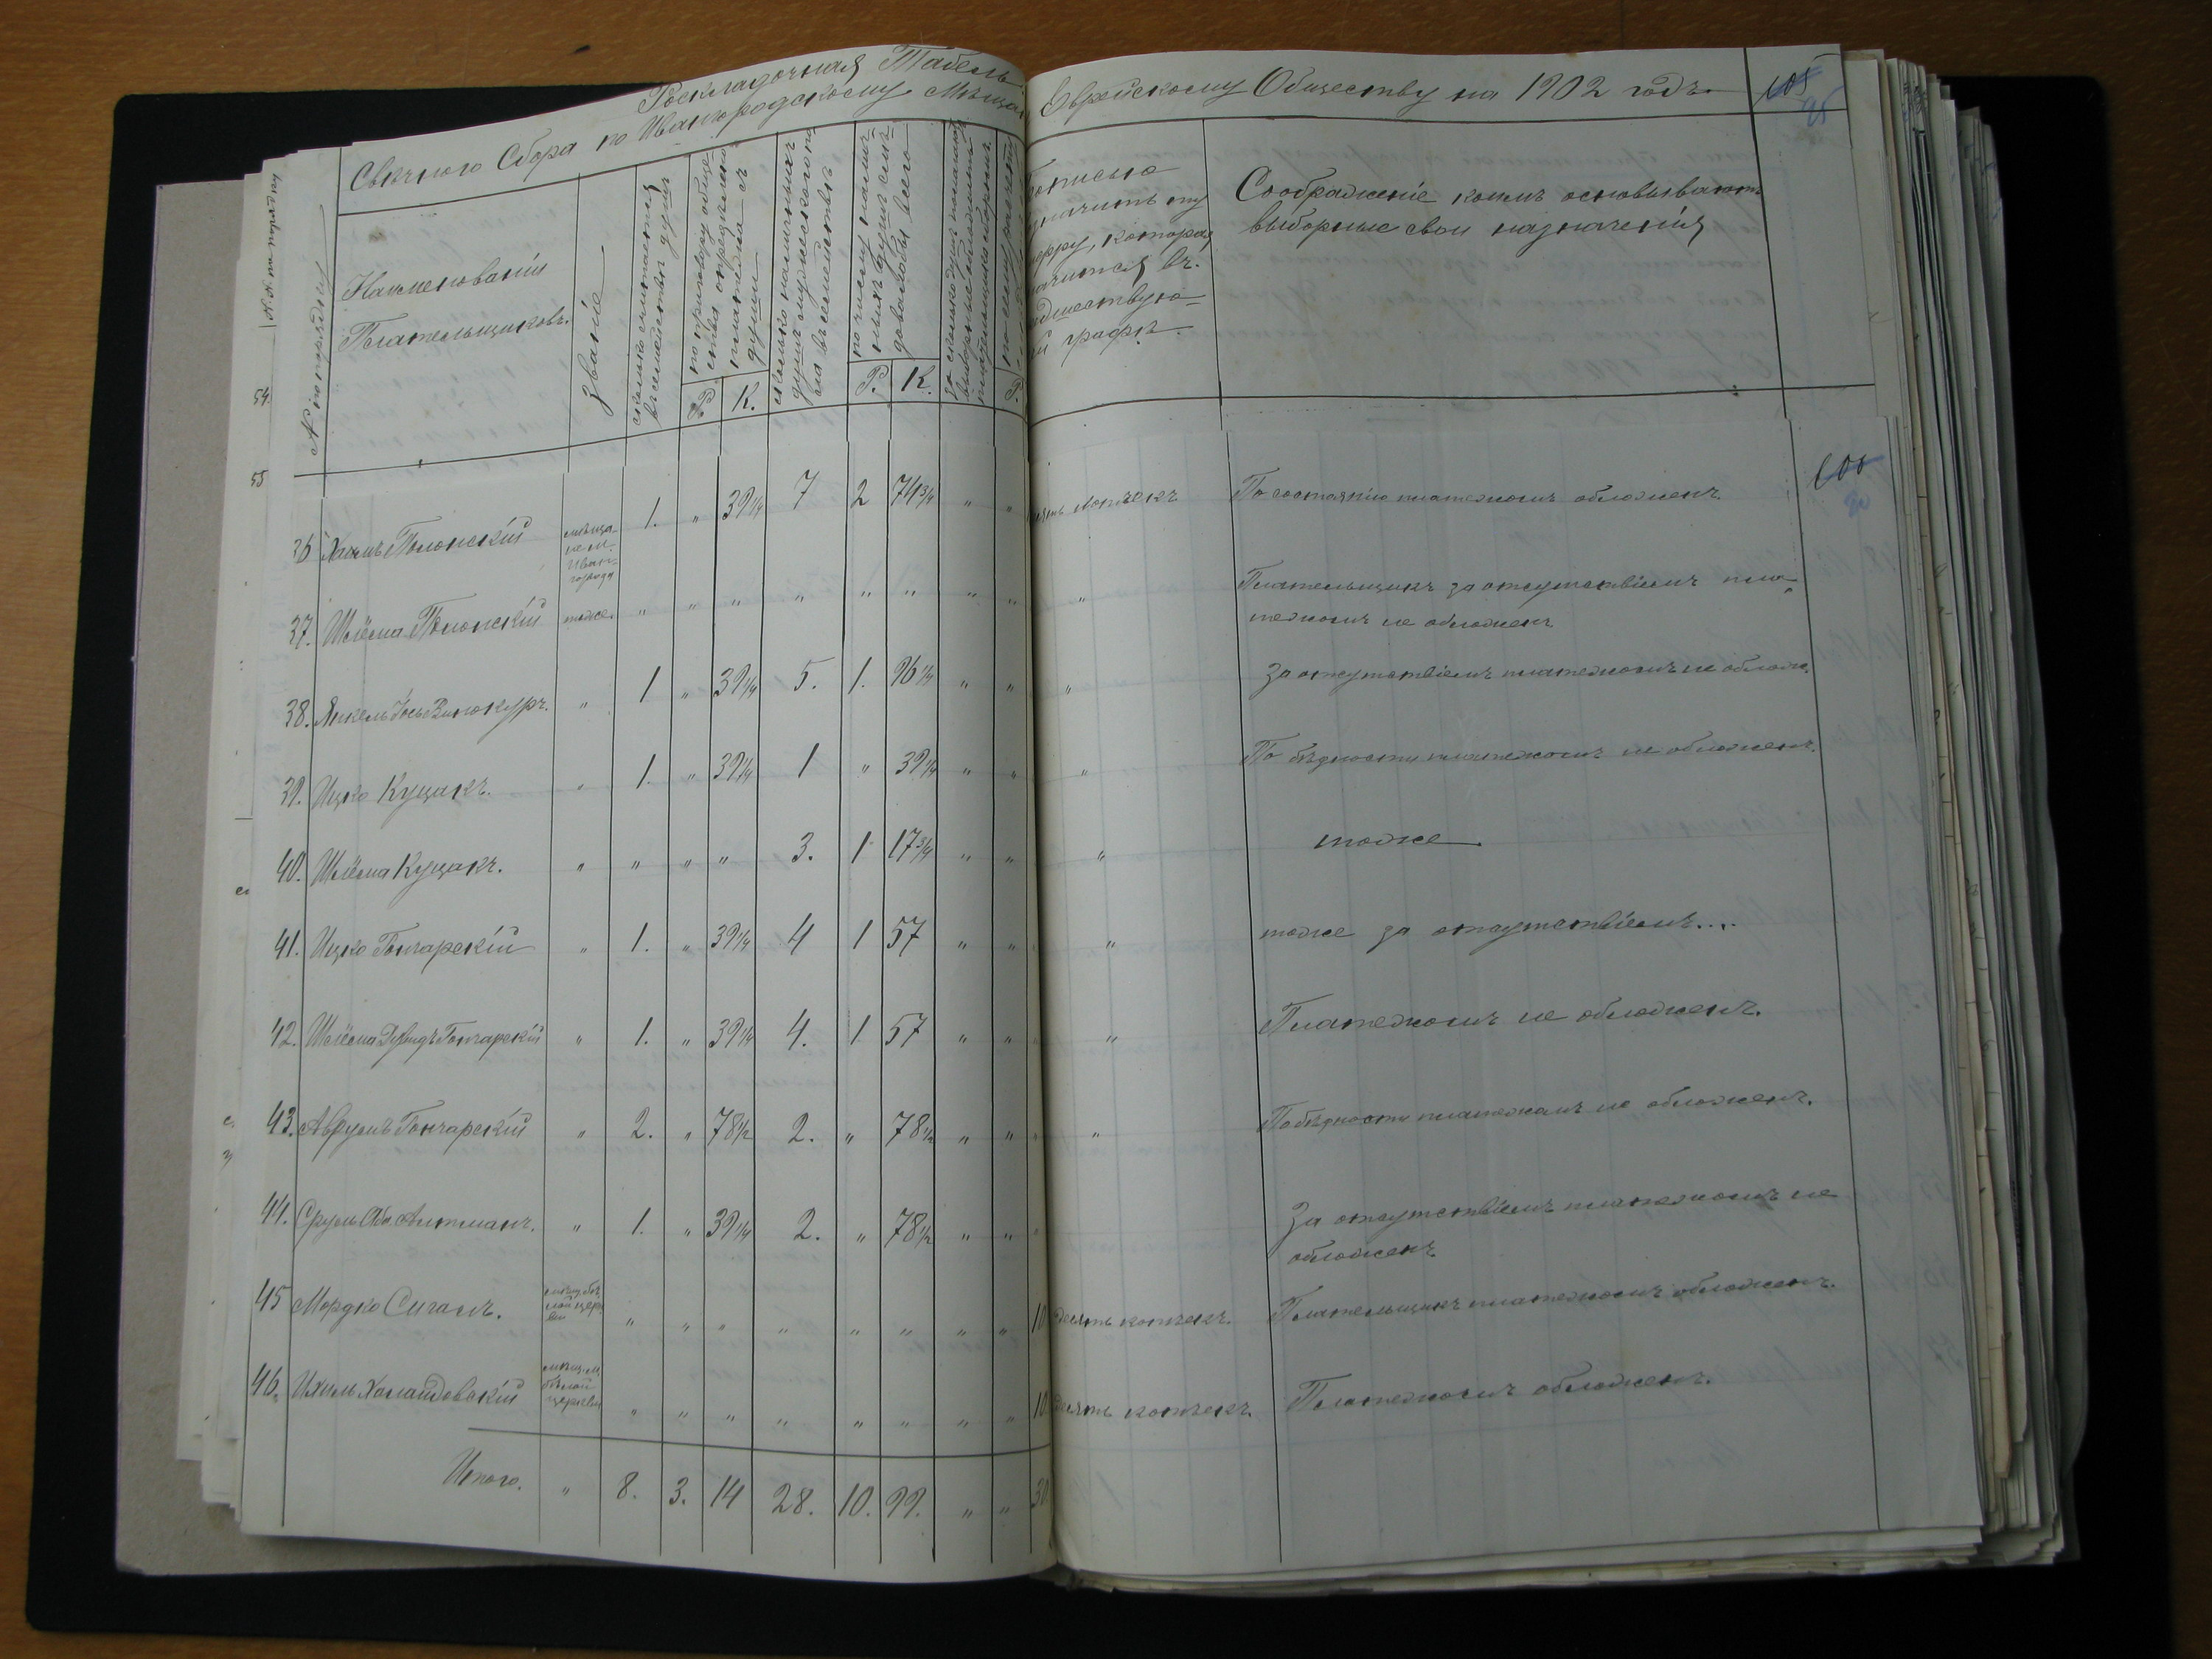 Роскладочная Табель
Свѣчного Сбора по Ивангородскому Мѣща
Еврейскому Обществу на 1902 годъ.
105
95
№ по порядку
Наименованія
Плательщиковъ.
Званіе
сколько считается
въ семействѣ душъ
по приговору обще-
ства опредѣлено
платежа съ
души
Р.
К.
сколько наличныхъ
душъ мужескаго по
ла въ семействѣ
по числу налич-
ныхъ душъ слѣ-
довало бы всего
Р.
К.
Р.
прописью
значить ту
цифру, которая
значится въ
предшествую-
й графѣ.
Соображеніе коимъ основываютъ
выборные свои назначенія
54.
55
100
36 Хаимъ Полонскій мѣща- не м. Иван- города 1. " 39¼ 7 2 74¾ " " копѣекъ По состоянію платежомъ обложенъ.
37. Шлёма Полонскій тоже. " " " " " " " " " Плательщикъ за отсутствіемъ пла-
тежомъ не обложенъ.
38. Янкель Іось Винокуръ. " 1 " 39¼ 5. 1. 96¼ " " " За отсутствіемъ платежомъ не облож.
39. Ицко Куцакъ. " 1. " 39¼ 1 " 39¼ " " " По бѣдности платежомъ не обложенъ.
40. Шлёма Куцакъ. " " " " 3. 1 17¾ " " " тоже.
41. Ицко Гончарскій " 1. " 39¼ 4 1 57 " " " тоже за отсутствіемъ....
42. Шлёма Дувидъ Гончарскій " 1. " 39¼ 4. 1 57 " " " Платежомъ не обложенъ.
43. Аврумъ Гончарскій " 2. " 78½ 2. " 78½ " " " По бѣдности платежомъ не обложенъ.
44. Сруль Аба Антманъ. " 1. " 39¼ 2. " 78½ " " За отсутствіемъ платежомъ не
обложенъ
45 Мордко Сигалъ. мѣщ. бѣ- лой цер- кви " " " " " " " " 10 десять копѣекъ. Плательщикъ платежомъ обложенъ.
46. Ихиль Халаидовскій мѣщ. м. бѣлой церкви " " " " " " " " 10 десять копѣекъ. Платежомъ обложенъ.
Итого. " 8. 3. 14 28. 10. 99. " " 30